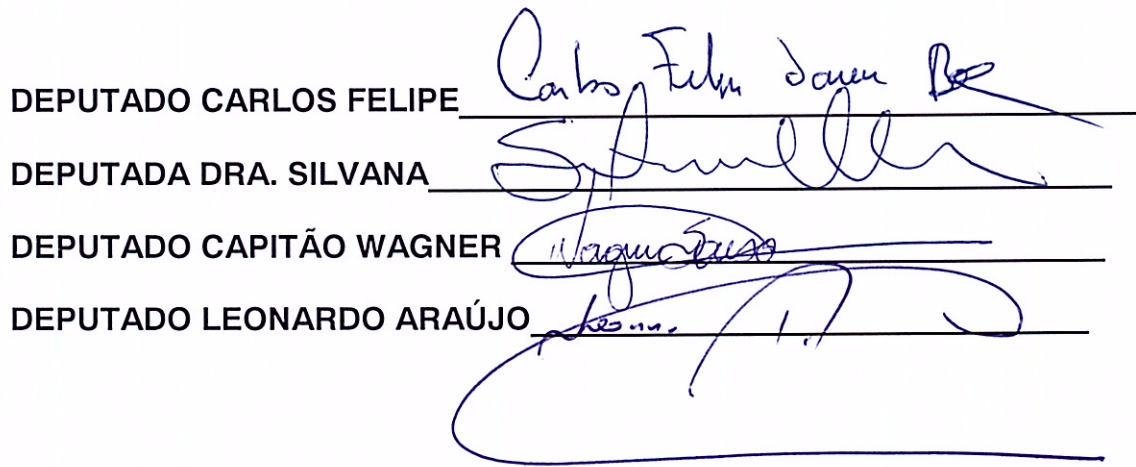 DEPUTADO CARLOS FELIPE Carlos Felipe
DEPUTADA DRA. SILVANA
DEPUTADO CAPITÃO WAGNER Wagner Sousa
DEPUTADO LEONARDO ARAÚJO